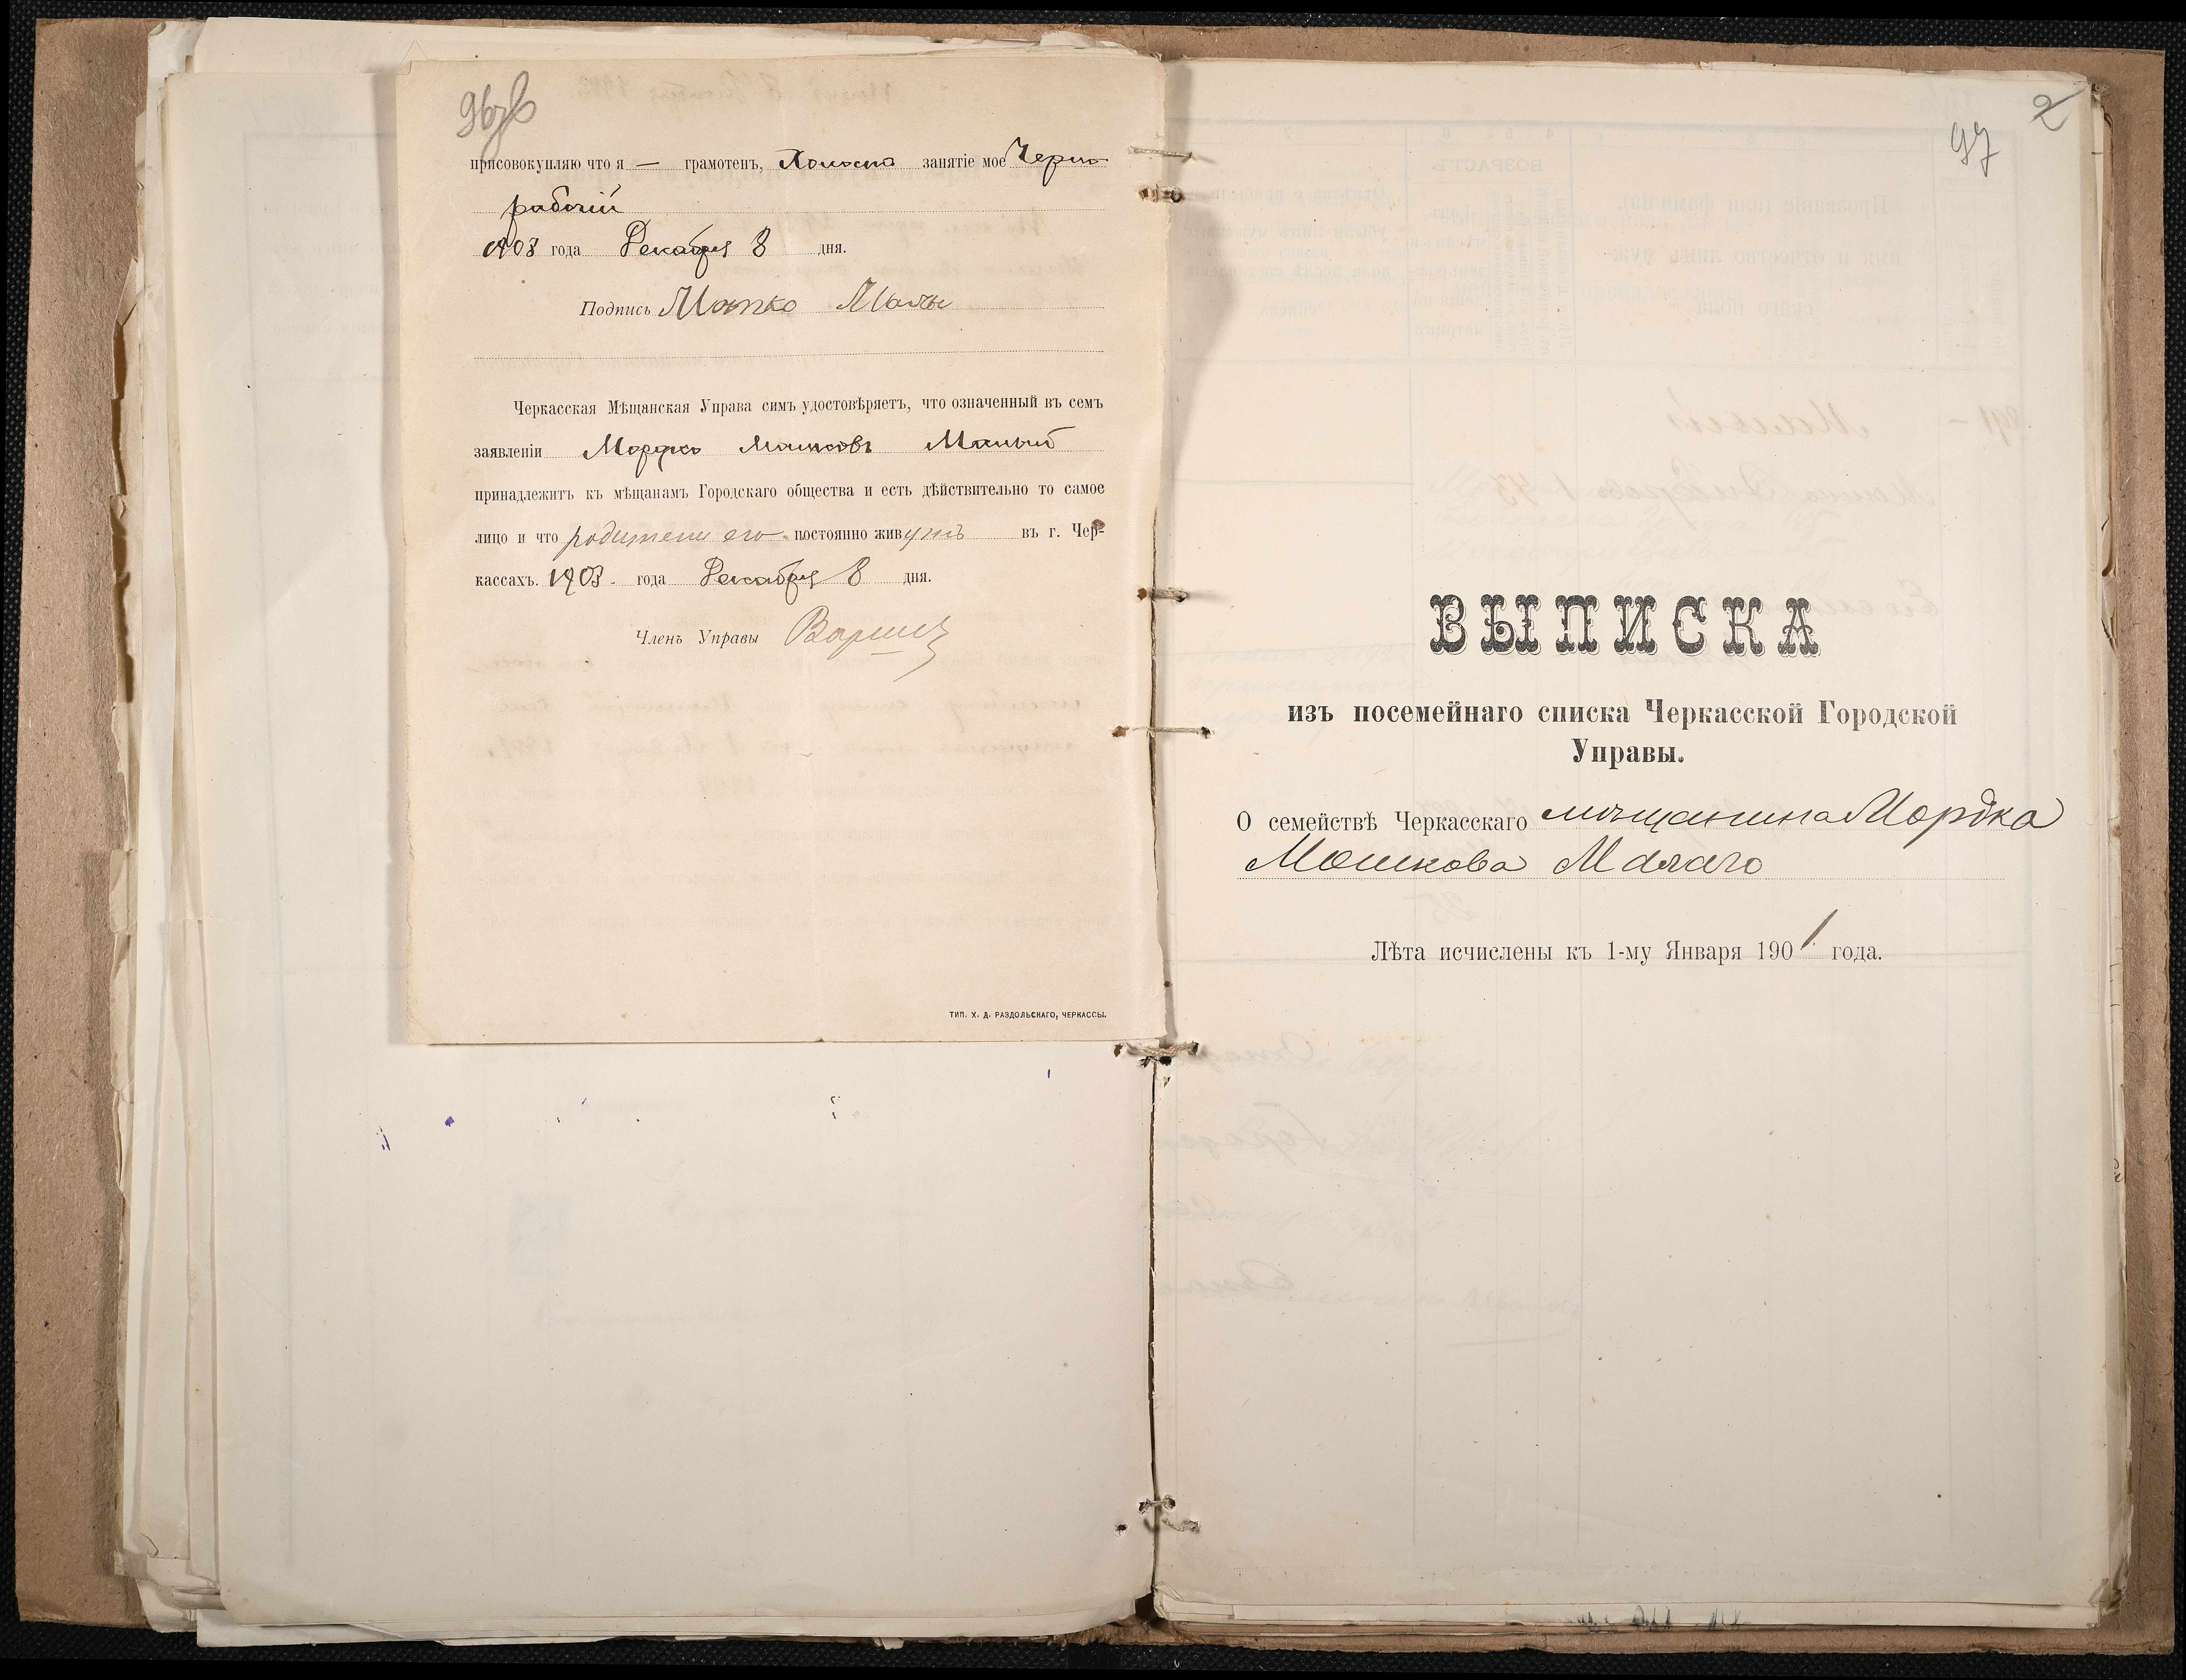 96об
присовокупляю что я — грамотенъ, Холостъ занятіе мое Черно
рабочій
1903 года Декабря 8 дня.
Подпись Мотко Малы
Черкасская Мѣщанская Управа симъ удостовѣряетъ, что означенный въ семъ
заявленіи Мордко Мошковъ Малый
принадлежитъ къ мѣщанамъ Городскаго общества и есть дѣйствительно то самое
лицо и что родители его постоянно живутъ въ г. Чер-
кассахъ. 1903 года Декабря 8 дня.
Членъ Управы
ТИП. Х. Д. РАЗДОЛЬСКАГО, ЧЕРКАССЫ.
2
97
ВЫПИСКА
изъ посемейнаго списка Черкасской Городской
Управы.
О семействѣ Черкасскаго мѣщанина Мордка
Мошкова Малаго
Лѣта исчислены къ 1-му Января 1901 года.